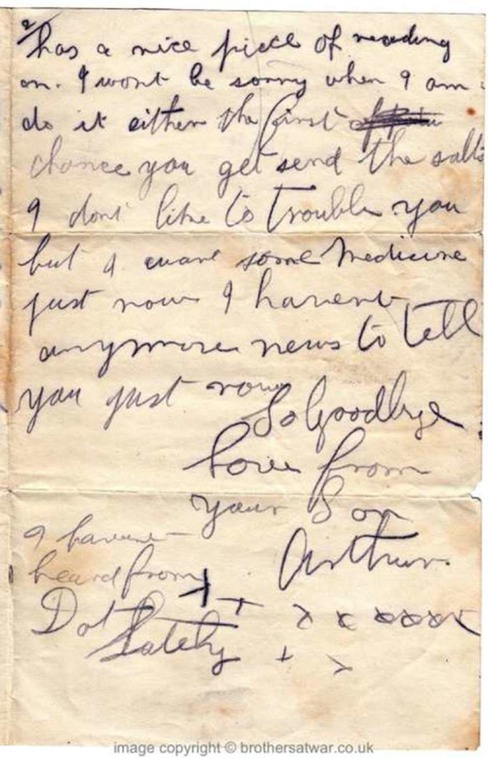 2/
has a nice piece of reading
on. I wont be sorry when I am
do it either the first
chance you get send the salts
I dont like to trouble you
but I want some Medicine
just now I havent
anymore news to tell
you just now
So Goodbye
love from
your Son
Arthur
I havent
heard from
Dot
lately
+ + x x xxxxx
+ x
image copyright © brothersatwar.co.uk